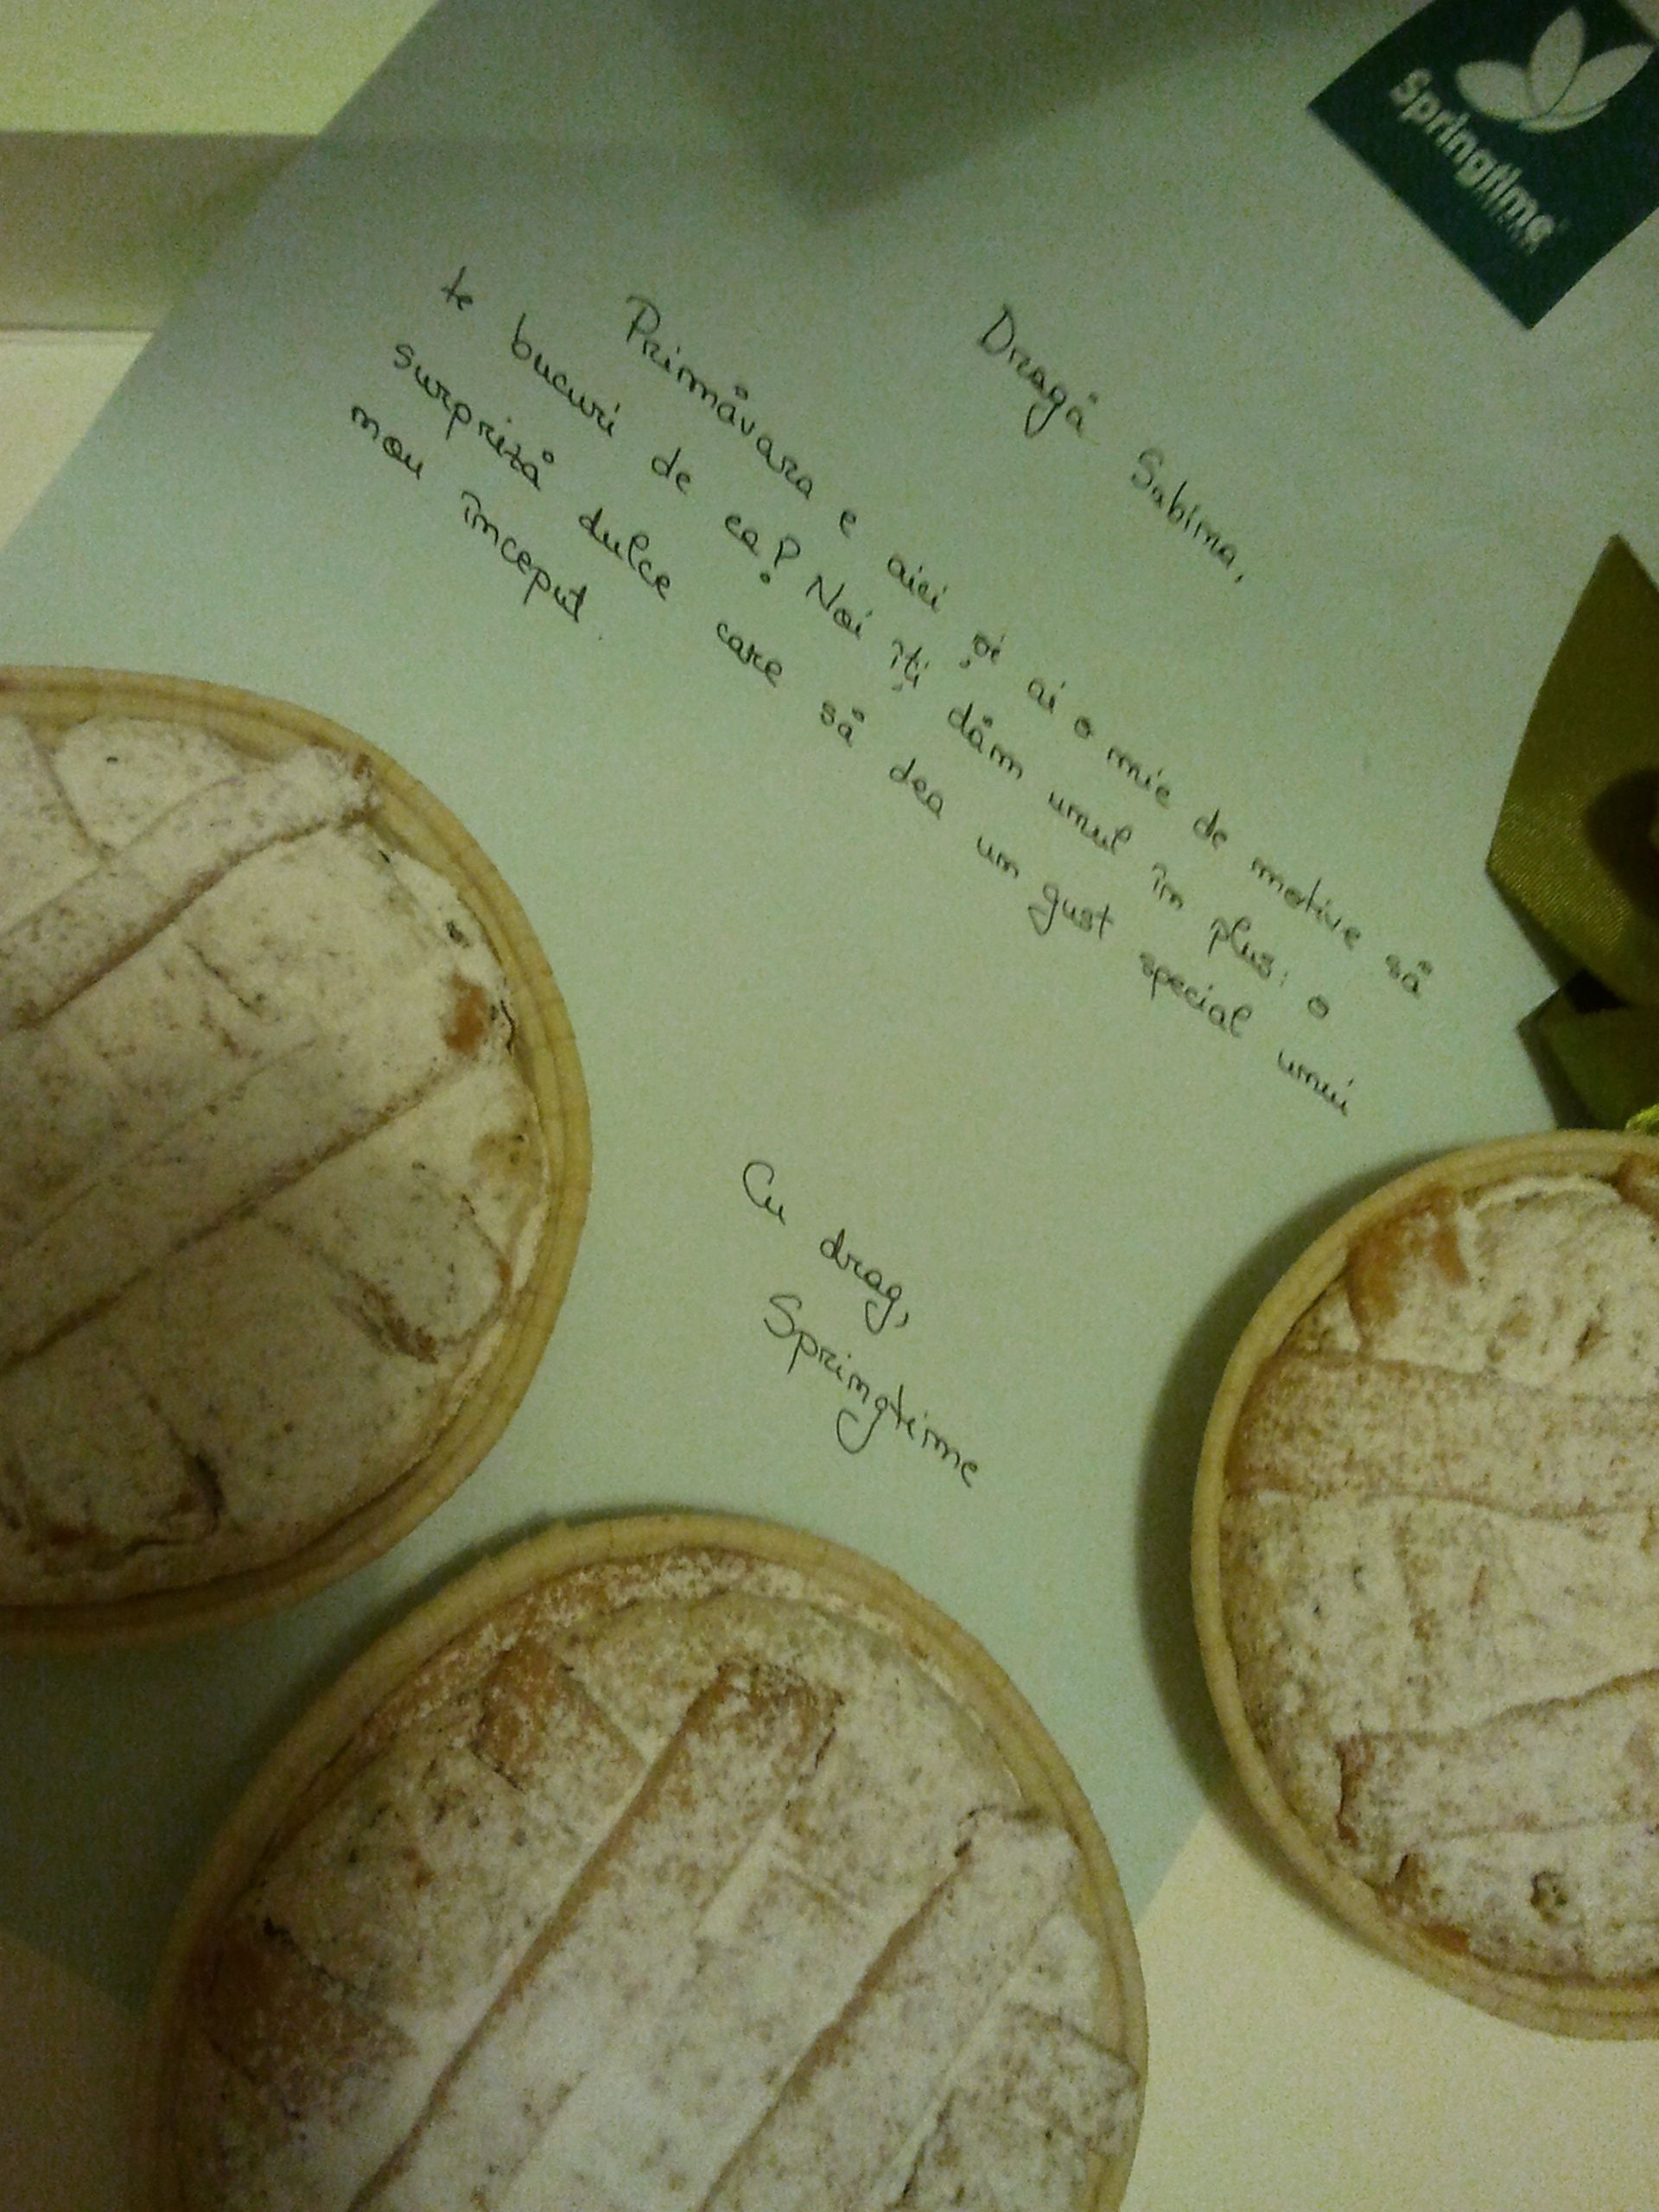 Springtime
Dragă Sabina,
Primăvara e aici și ai o mie de motive să
te bucuri de ea! Noi îți dăm unul în plus: o
surpriză dulce care să dea un gust special unui
nou început.
Cu drag,
Springtime